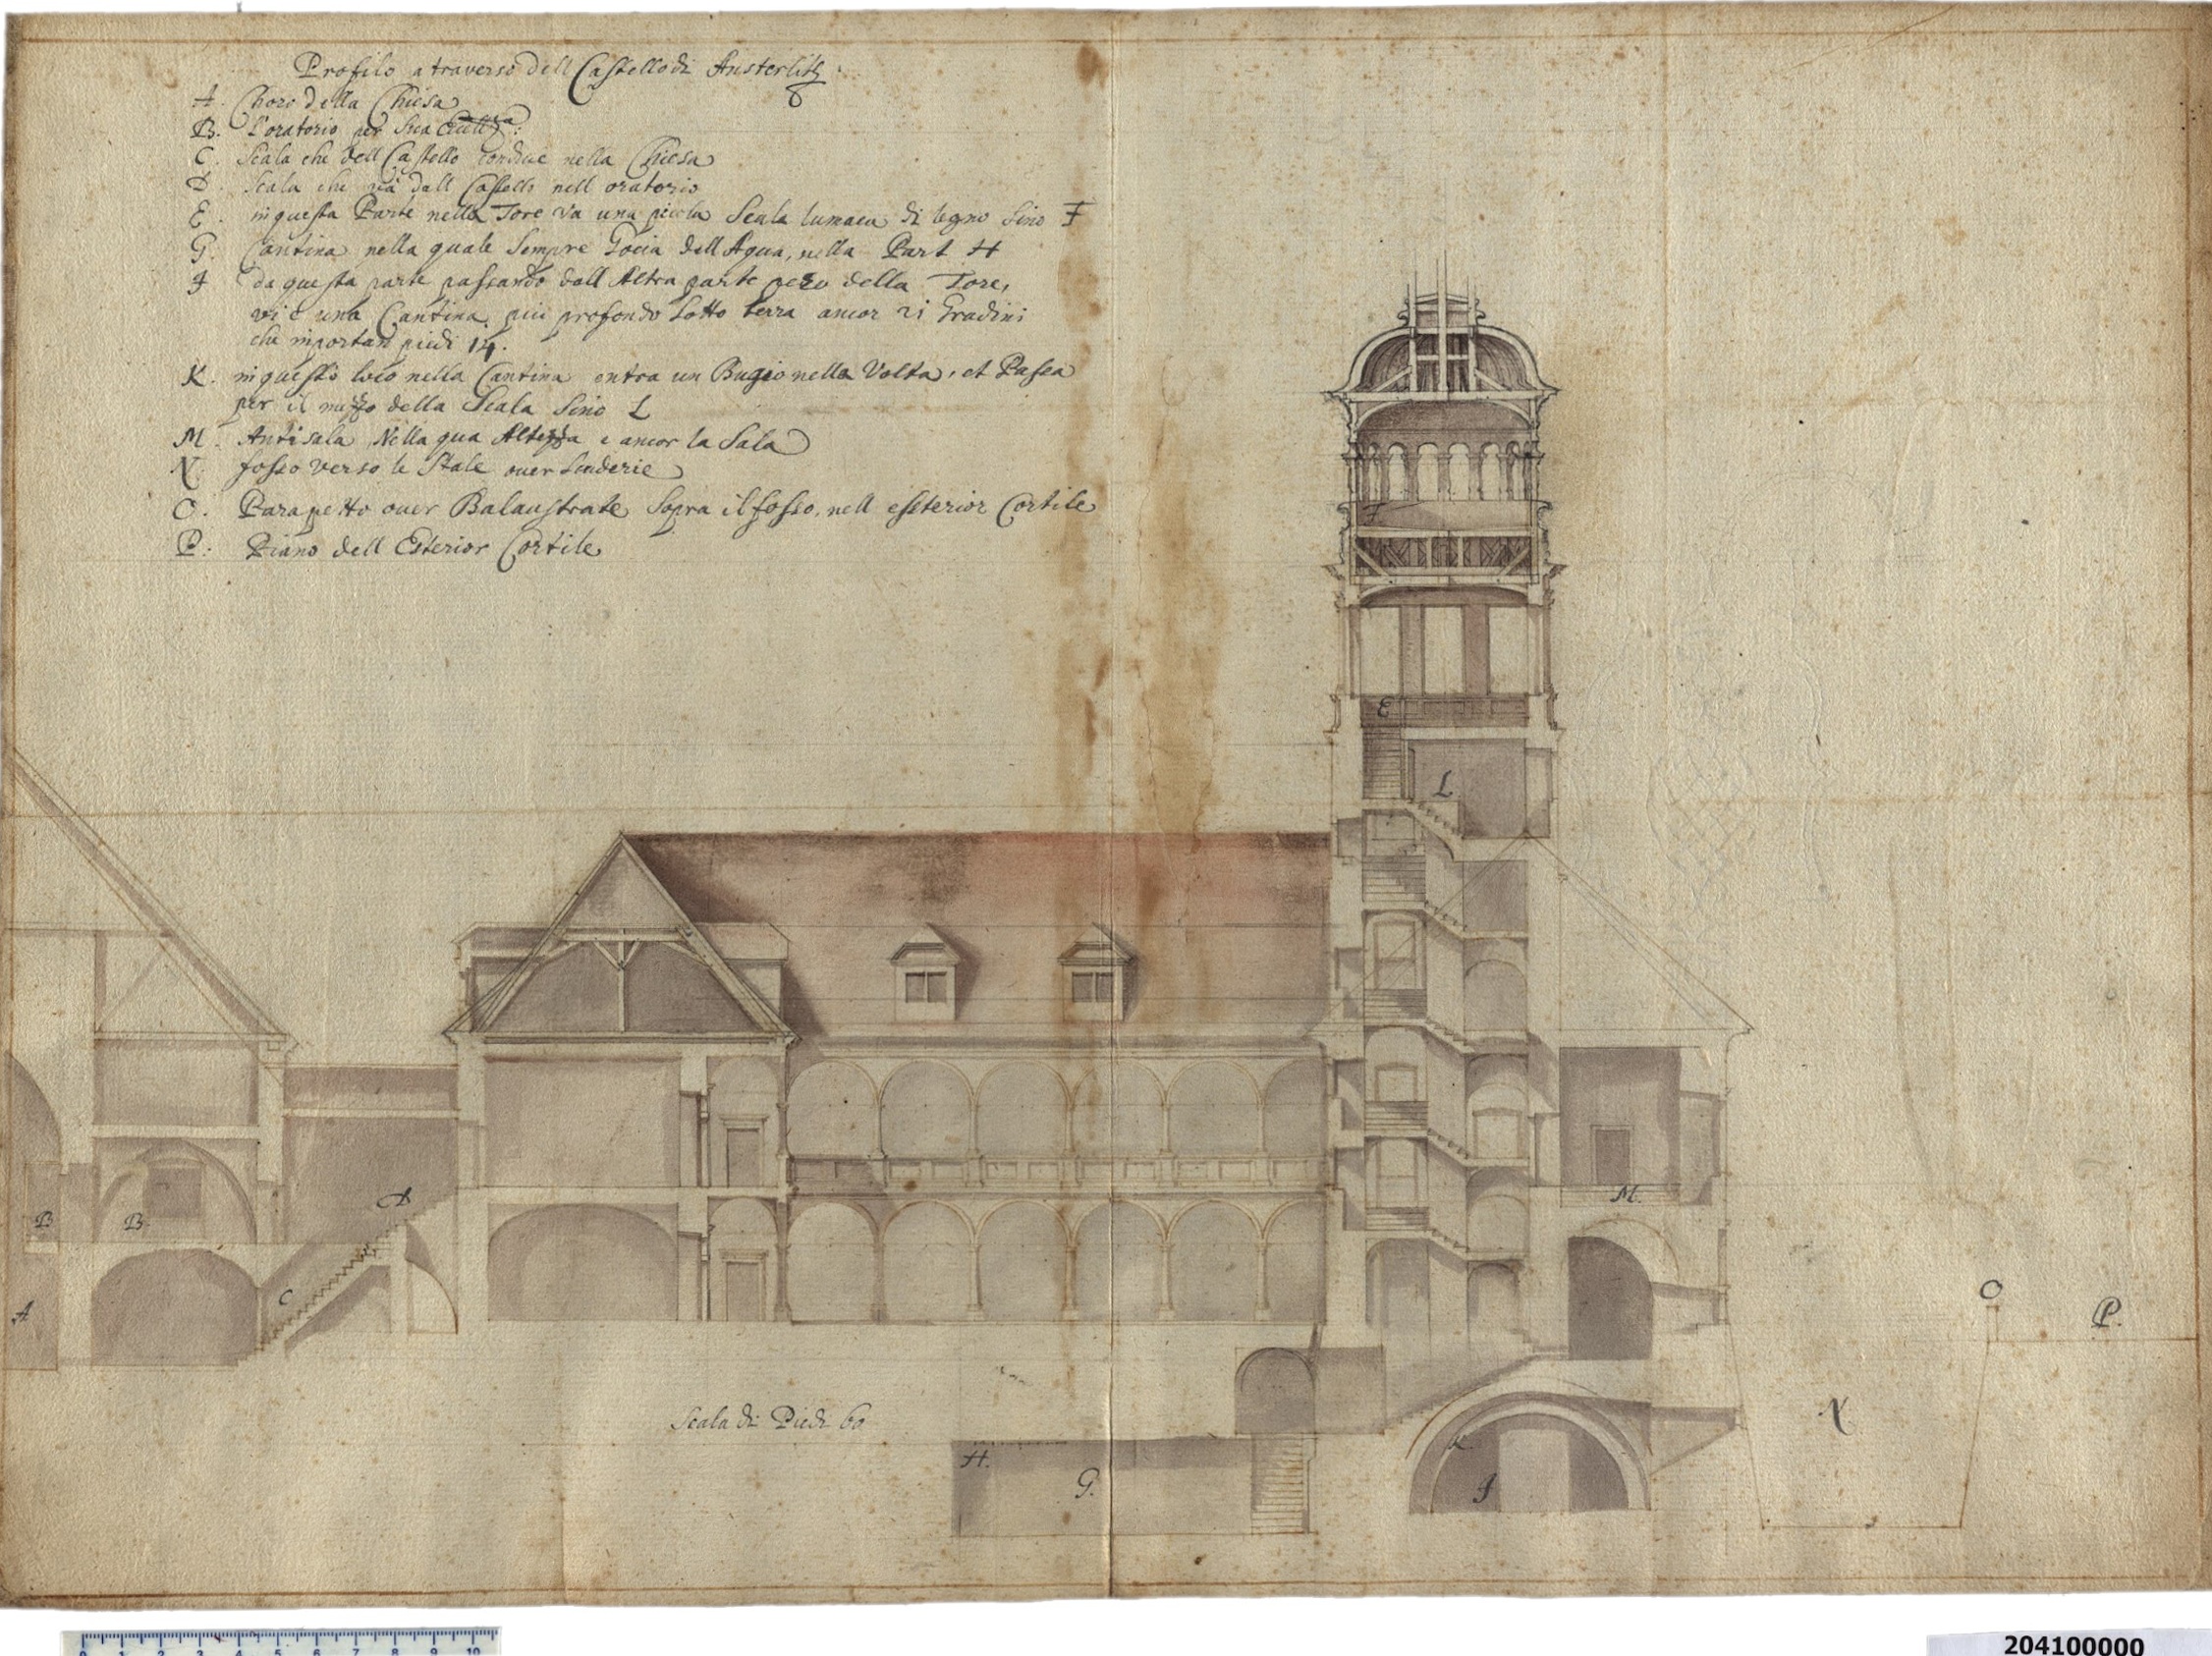 Profilo a traverso dell Castello di Austerlitz
A. Choro della Chiesa
B. L'oratorio per Sua
C. Scala che dell Castello conduce nella Chiesa
D. Scala che va dall Castello nell oratorio
E. in questa Parte nella Tore va una picola Scala lumaca di legno Sino F
G. Cantina nella quale Sempre Gocia dell Aqua, nella Part H
J da questa parte passando dall Altra parte pero della Tore,
vi è una Cantina più profondo Sotto terra ancor 21 Gradini
che importan piedi 14.
K. in questo loco nella Cantina entra un Bugio nella Volta, et Passa
per il mezzo della Scala Sino L
M. Antisala Nella qua Altezza e ancor la Sala
N. fosso verso le Stale over Suderie
O. Parapetto over Balaustrate Sopra il fosso, nell esterior Cortile
P. Piano dell Esterior Cortile
F
E
L
D
M.
B
B.
C
A
O
P.
Scala di Piedi 60
N
H.
G.
K
J
0 1 2 3 4 5 6 7 8 9 10
204100000